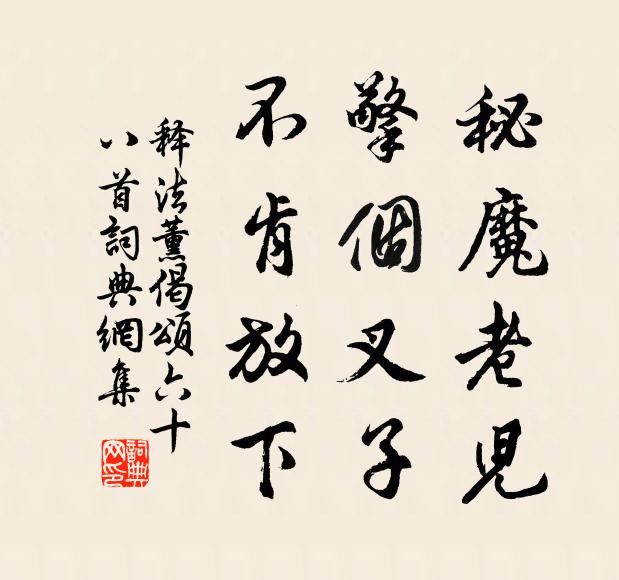 秘魔老兒
擎個叉子
不肯放下
释法薰偈頌六十
八首詞典網集
詞典网印